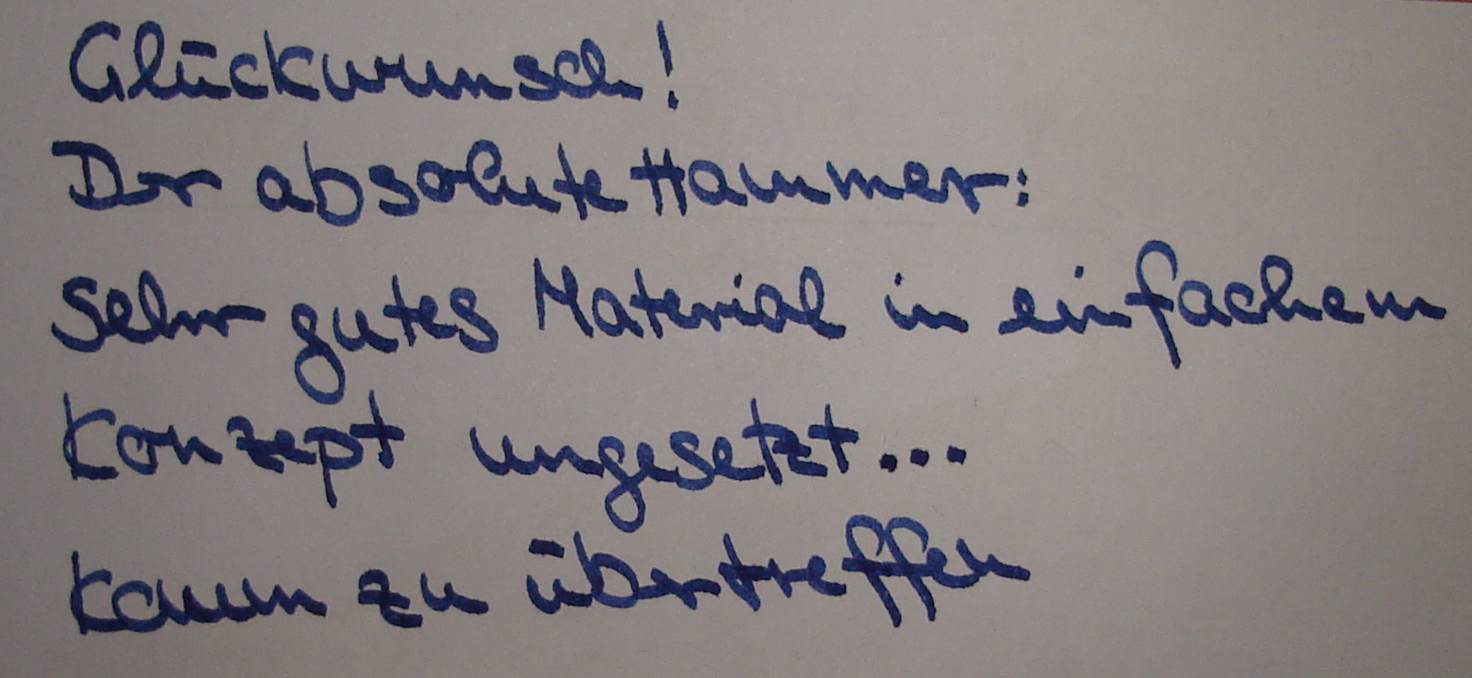 Glückwunsch!
Der absolute Hammer:
Sehr gutes Material in einfachem
Konzept umgesetzt...
kaum zu übertreffen